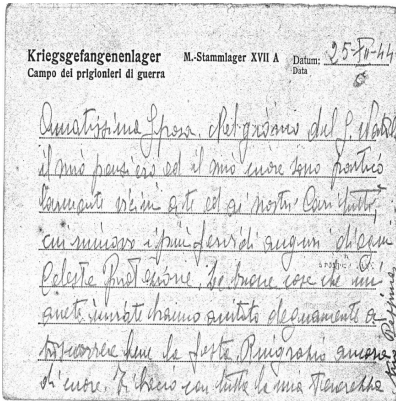 Kriegsgefangenenlager M.-Stammlager XVII A Datum: 25-XII-44
Campo dei prigionieri di guerra Data
Amatissima Sposa, Nel giorno del S. Natale
il mio pensiero ed il mio cuore sono partico
larmente vicini a te ed ai nostri cari tutti,
cui rinnovo i più fervidi auguri di ogni
Celeste Protezione. Le buone cose che mi
avete inviate hanno aiutato degnamente a
trascorrere bene la festa. Ringrazio ancora
di cuore. Ti bacio con tutta la mia tenerezza
tuo